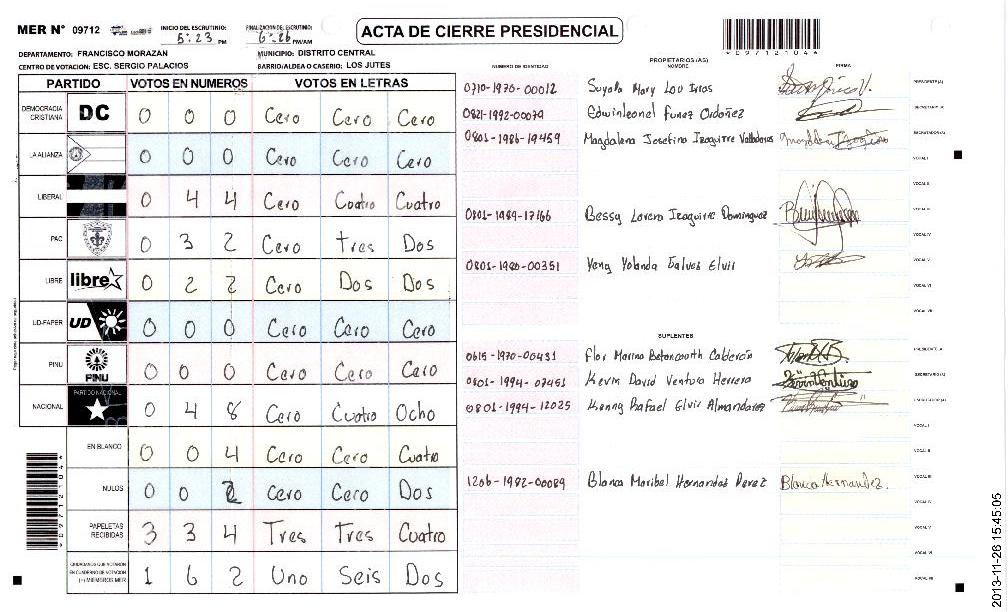 MER Nº 09712
INICIO DEL ESCRUTINIO: 5:23 PM
FINALIZACION DEL ESCRUTINIO: 6:26 PM/AM
ACTA DE CIERRE PRESIDENCIAL
*09712104*
DEPARTAMENTO: FRANCISCO MORAZAN
MUNICIPIO: DISTRITO CENTRAL
CENTRO DE VOTACION: ESC. SERGIO PALACIOS
BARRIO/ALDEA O CASERIO: LOS JUTES
PARTIDO VOTOS EN NUMEROS VOTOS EN LETRAS
DEMOCRACIA CRISTIANA DC 0 0 0 Cero Cero Cero
LA ALIANZA 0 0 0 Cero Cero Cero
LIBERAL 0 4 4 Cero Cuatro Cuatro
PAC 0 3 2 Cero tres Dos
LIBRE libre 0 2 2 Cero Dos Dos
UD-FAPER UD 0 0 0 Cero Cero Cero
PINU PINU 0 0 0 Cero Cero Cero
NACIONAL PARTIDO NACIONAL 0 4 8 Cero Cuatro Ocho
EN BLANCO 0 0 4 Cero Cero Cuatro
NULOS 0 0 2 Cero Cero Dos
PAPELETAS RECIBIDAS 3 3 4 Tres Tres Cuatro
CIUDADANOS QUE VOTARON EN CUADERNO DE VOTACION (+) MIEMBROS MER 1 6 2 Uno Seis Dos
NUMERO DE IDENTIDAD
PROPIETARIOS (AS)
NOMBRE
FIRMA
0710-1970-00012 Suyapa Mary Lou PRESIDENTE(A)
0821-1992-00079 Edwinleonel Funez Ordoñez SECRETARIO(A)
0801-1986-19459 Magdalena Josefina Izaguirre Valladares ESCRUTADOR(A)
VOCAL I
VOCAL II
0801-1989-17166 Bessy Lorena Izaguirre Dominguez VOCAL III
VOCAL IV
0801-1980-00351 Yeny Yolanda Galves Elvir VOCAL V
VOCAL VI
VOCAL VII
SUPLENTES
0615-1970-00431 Flor Marina Betancourth Calderón PRESIDENTE(A)
0801-1994-07451 Kevin David Ventura Herrera SECRETARIO(A)
0801-1994-12025 Kenny Rafael Elvir Almandares ESCRUTADOR(A)
VOCAL I
VOCAL II
1206-1982-00089 Blanca Maribel Hernandez Perez Blanca Hernandez. VOCAL III
VOCAL IV
VOCAL V
VOCAL VI
VOCAL VII
2013-11-26 15:45:05